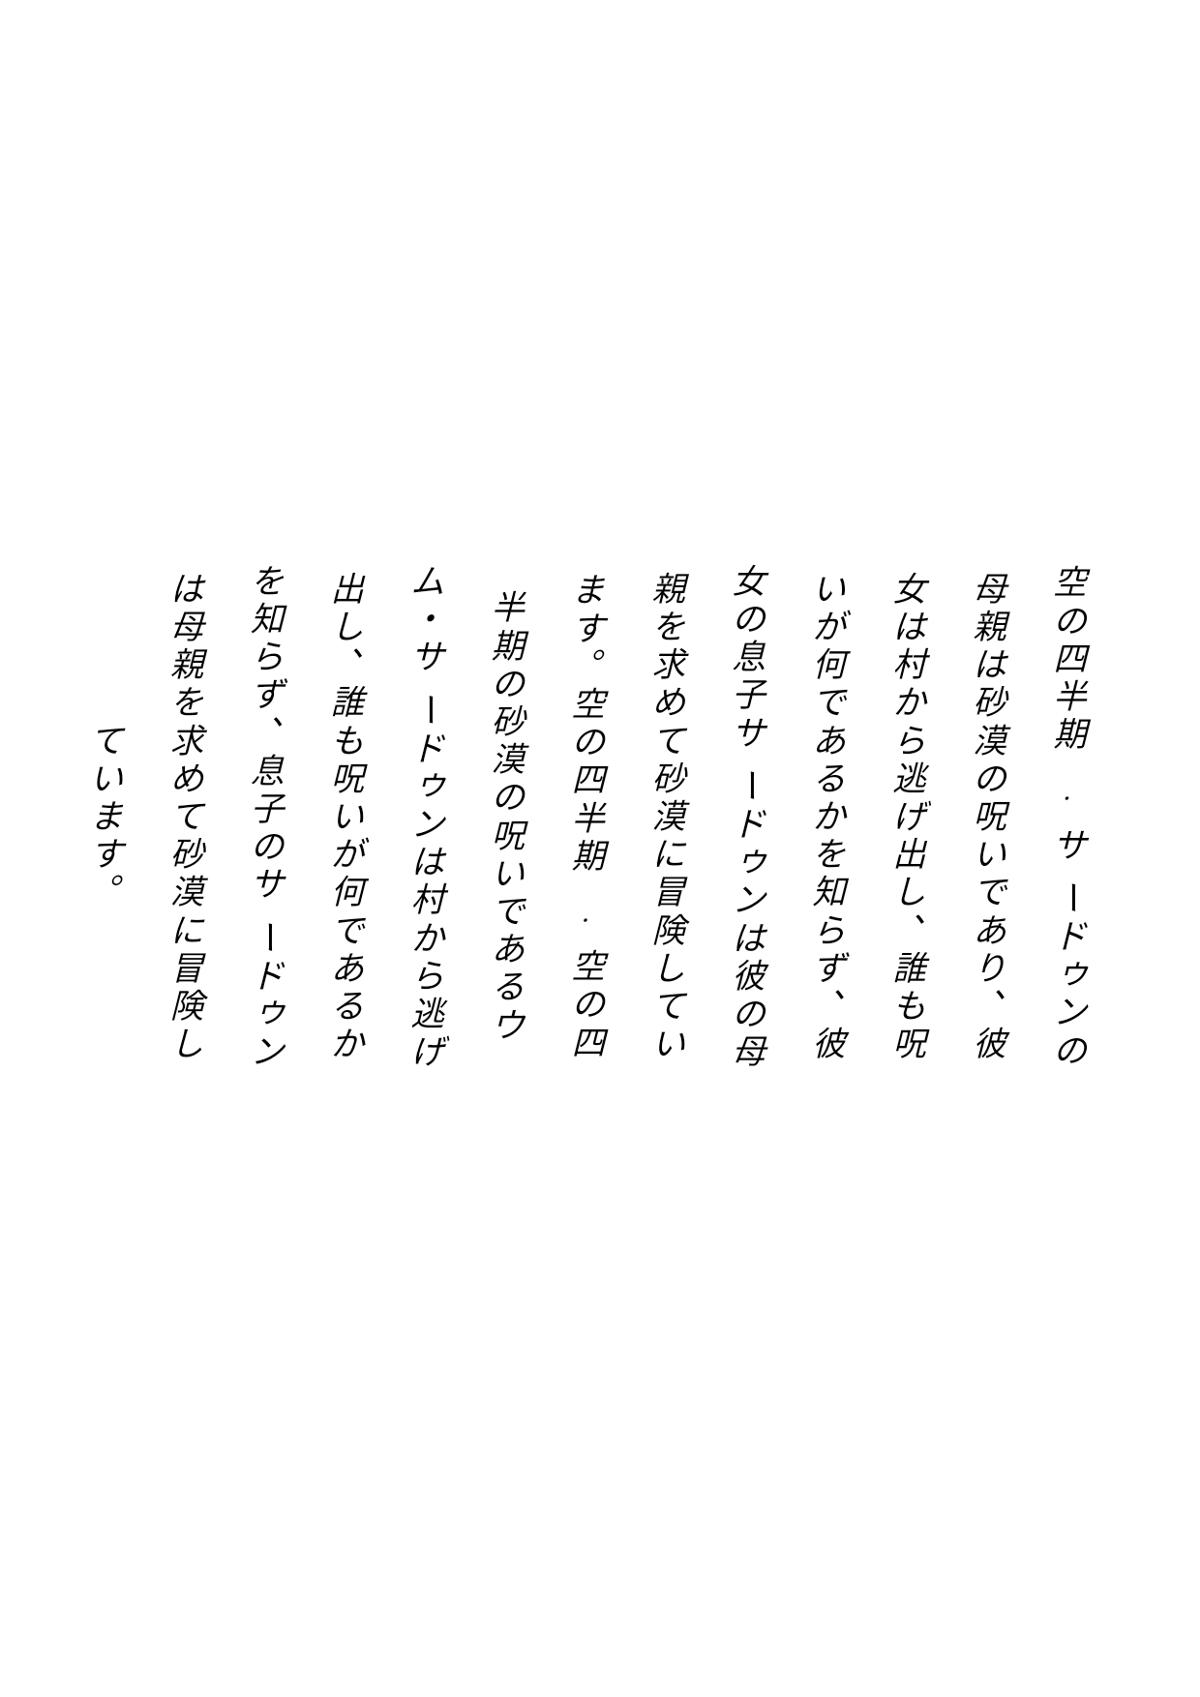 空の四半期 . サードゥンの
母親は砂漠の呪いであり、彼
女は村から逃げ出し、誰も呪
いが何であるかを知らず、彼
女の息子サードゥンは彼の母
親を求めて砂漠に冒険してい
ます。空の四半期 . 空の四
半期の砂漠の呪いであるウ
ム・サードゥンは村から逃げ
出し、誰も呪いが何であるか
を知らず、息子のサードゥン
は母親を求めて砂漠に冒険し
ています。